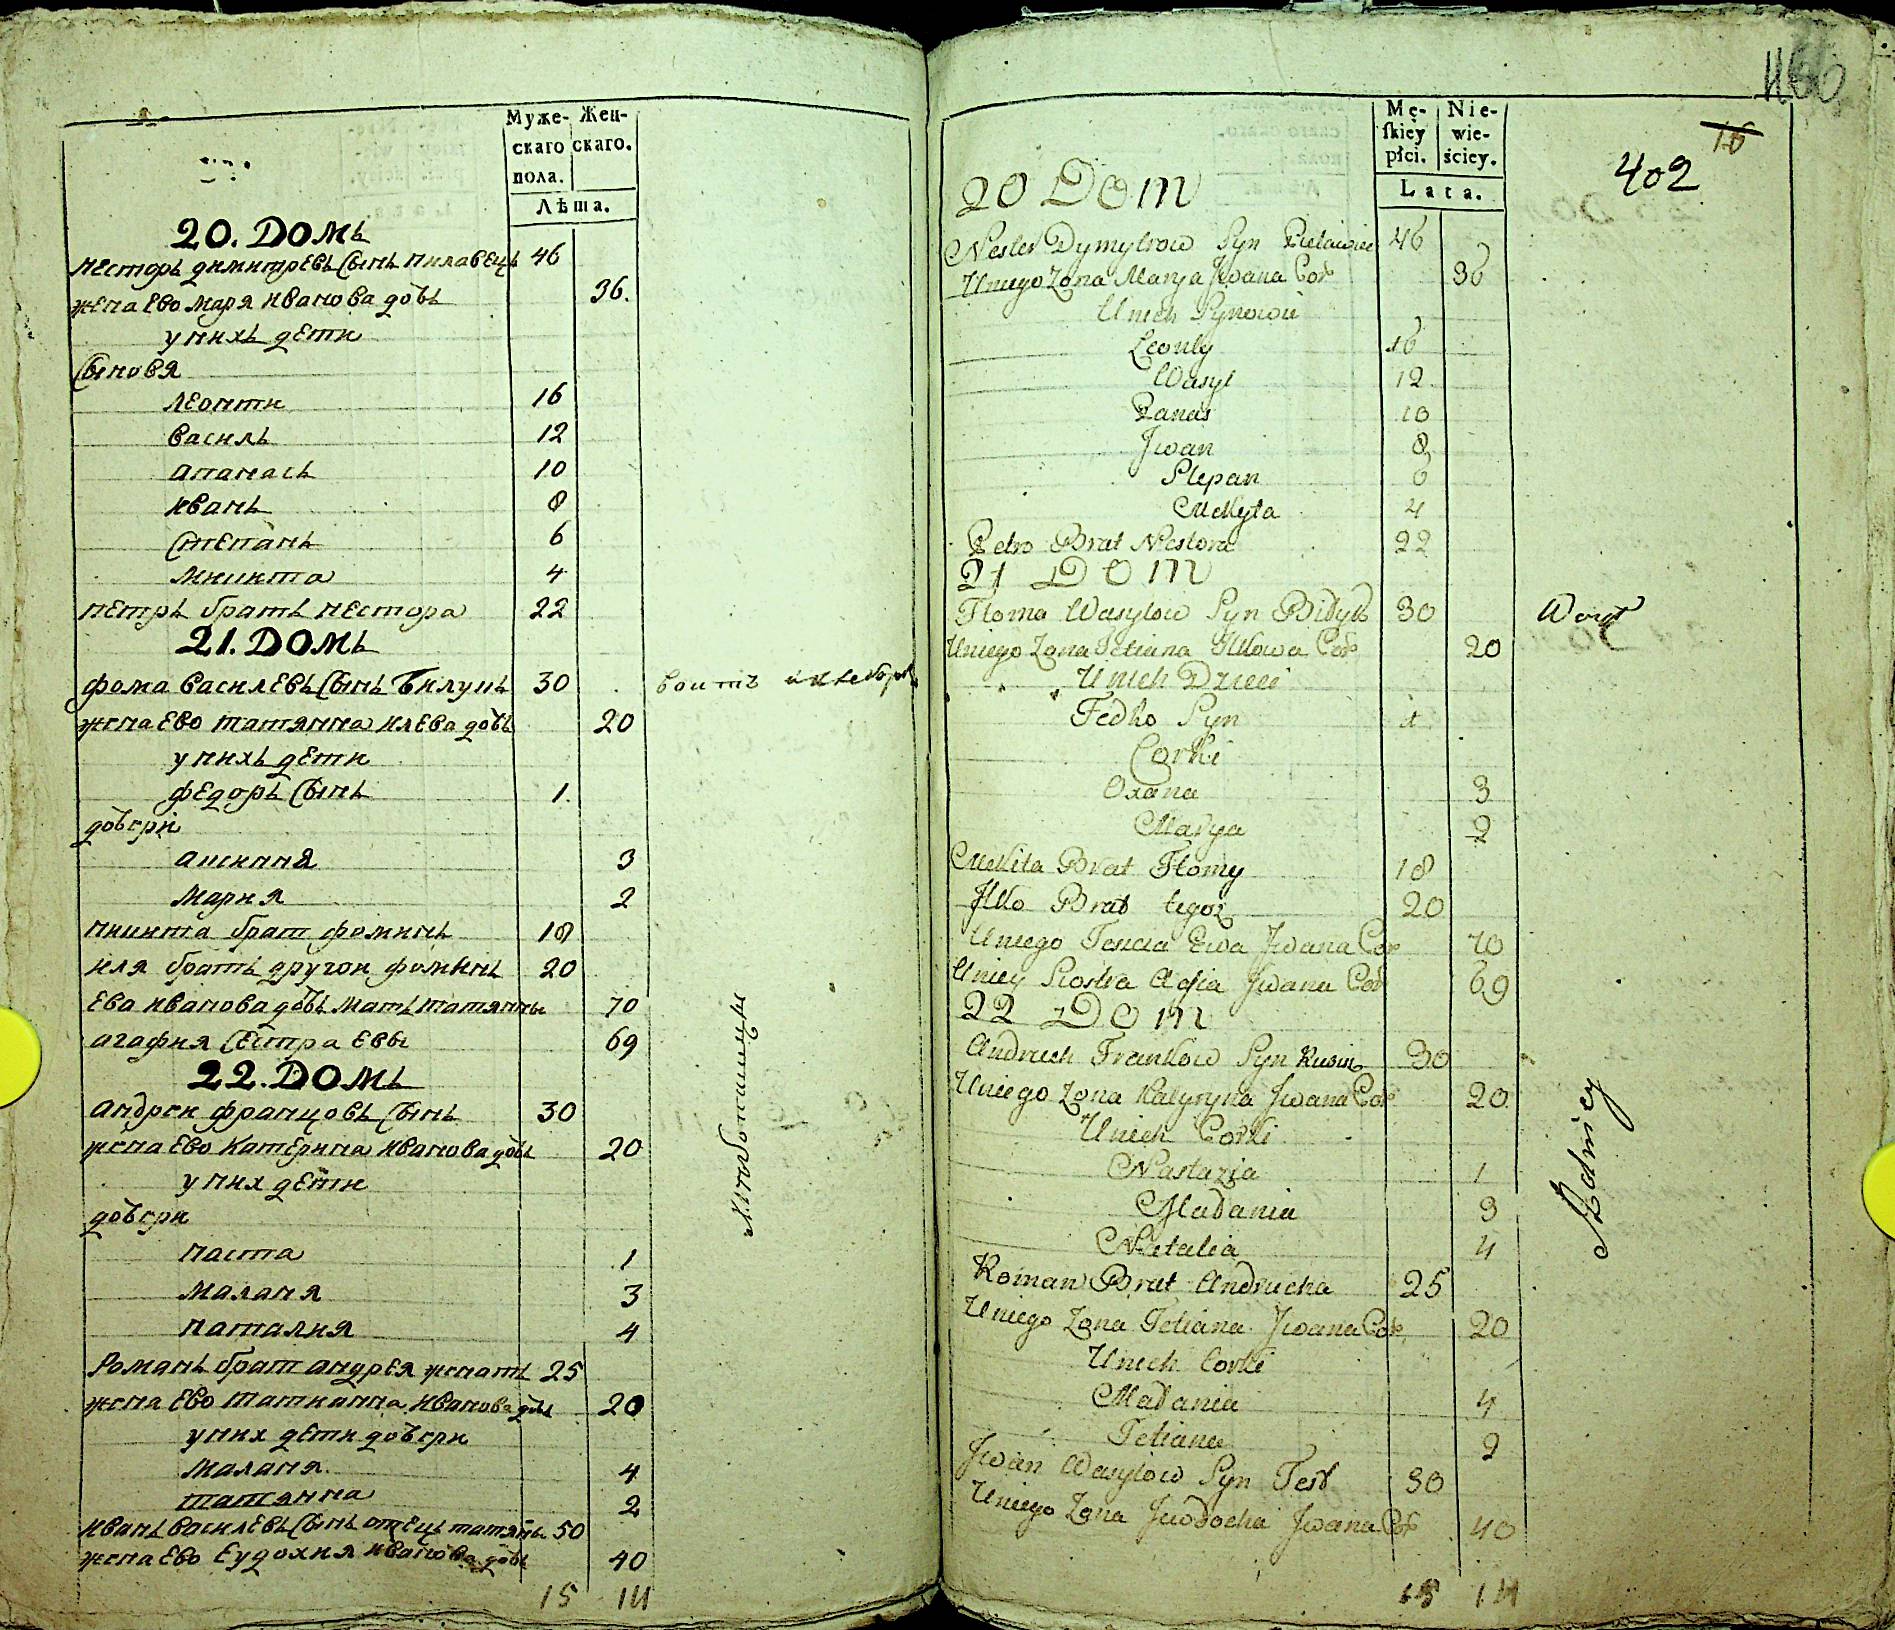 Муже-
скаго
пола.
Жен-
скаго.
Лѣта.
20. Домъ
Несторъ Димитревъ Сынъ Пилавецъ 46
жена Ево Маря Иванова довъ 36.
у нихъ дети
Сыновя
Леонти 16
Василь 12
Апанасъ 10
Иванъ 8
Степанъ 6
Микита 4
Петръ братъ Нестора 22
21. Домъ
Фома Василевъ Сынъ 30 воитъ
жена Ево Татянна Илева довъ 20
у нихъ дети
Федоръ Сынъ 1.
довери
3
Мария 2
Никита брат Фоминъ 18
Иля братъ другои Фоминъ 20
Ева Иванова довъ Мать Татянны 70
Агафия Сестра Евы 69
22. Домъ
Андреи Францовъ Сынъ 30
жена Ево Катерина Иванова довъ 20
у них дети
довери
Наста 1
Маланя 3
Наталия 4
Романъ брат Андрея женатъ 25
жена Ево Татианна Иванова довъ 20
у них дети довери
Маланя 4
Татянна 2
Иванъ Василевъ Сынъ отецъ Татяны 50
жена Ево Еудохия Иванова довъ 40
15 14
Mę-
ſkiey
płci.
Nie-
wie-
ściey.
Lata.
16
402
20 Dom
Nester Dymytrow Syn 46
Uniego Zona Marya Jwana Cor 36
Unich Synowie
Leonty 16
Wasyl 12
Panas 10
Jwan 8
Stepan 6
Mekyta 4
Petro Brat Nestora 22
21 Dom
Floma Wasylow Syn 30 Woyt
Uniego Zona Tetiana Ilkowa Cor 20
Unich Dzieci
Fedko Syn 1
Corki
Oxana 3
Marya 2
Mekita Brat Flomy 18
Ilko Brat tegoz 20
Uniego Tescia Ewa Jwana Cor 70
Uniey Siostra Jwana Cor 69
22 Dom
Andruch Frankow Syn 30
Uniego Zona Katyryna Jwana Cor 20
Unich Corki
Nastazia 1
Małania 3
Natalia 4
Roman Brat Andrucha 25
Uniego Zona Tetiana Jwana Cor 20
Unich Corki
Małania 4
Tetiana 2
Jwan Wasylow Syn Test 50
Uniego Zona Jwdocha Jwana Cor 40
15 14